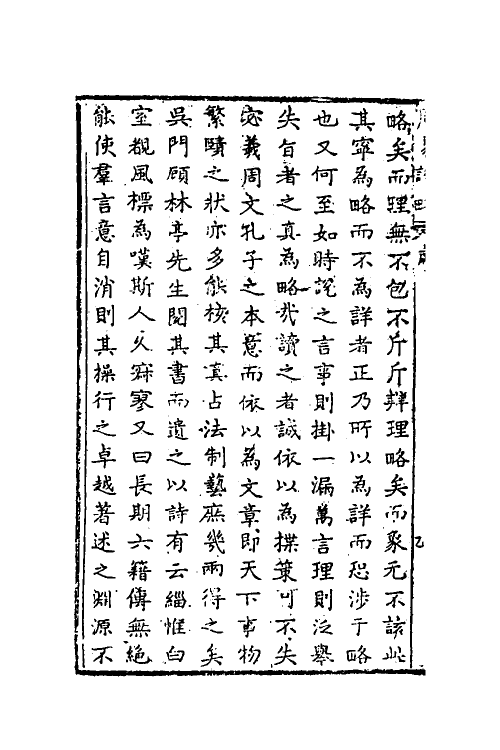 略矣而理無不包不斤斤辯理略矣而象无不該此
其寜為略而不為詳者正乃所以為詳而恐涉于略
也又何至如時說之言事則掛一漏萬言理則泛舉
失旨者之真為略哉讀之者誠依以為揲策可不失
宓羲周文孔子之本意而依以為文章即天下事物
繁賾之狀亦多能核其真占法制藝庶幾兩得之矣
吳門顧林亭先生閱其書而遺之以詩有云緇惟白
室覩風標為嘆斯人久寂寥又曰長期六籍傳無絕
能使羣言意自消則其操行之卓越著述之淵源不